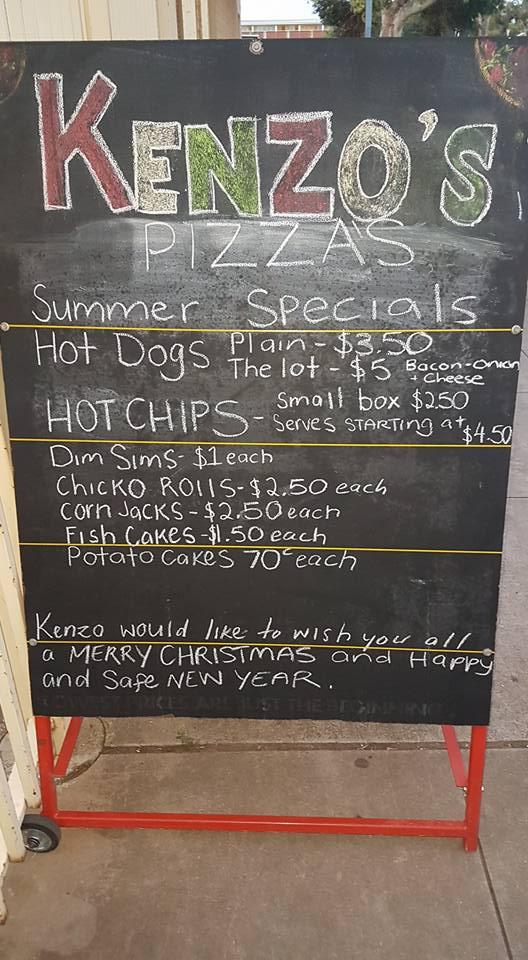 KENZO'S
PIZZA'S
Summer Specials
Hot Dogs Plain - $3.50
The lot - $5 Bacon-Onion
+ Cheese
HOT CHIPS - Small box $2.50
Serves STARTING at $4.50
Dim Sims- $1 each
CHICKO ROLLS - $2.50 each
Corn Jacks - $2.50 each
Fish Cakes - $1.50 each
Potato Cakes 70c each
Kenzo would like to wish you all
a MERRY CHRISTMAS and Happy
and Safe NEW YEAR.
LOWEST PRICES ARE JUST THE BEGINNING